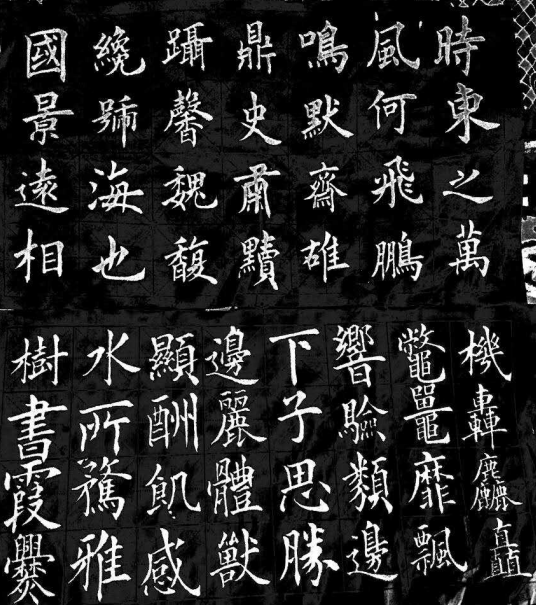 時東之萬
風何飛鵬
鳴默齋雄
鼎史肅黷
躡馨魏馥
纔海也
國景遠相
機轟麤矗
鼈鼉靡飄
響驗類邊
下子思勝
邊麗體獸
顯酬飢感
水所雅
樹書霞爨